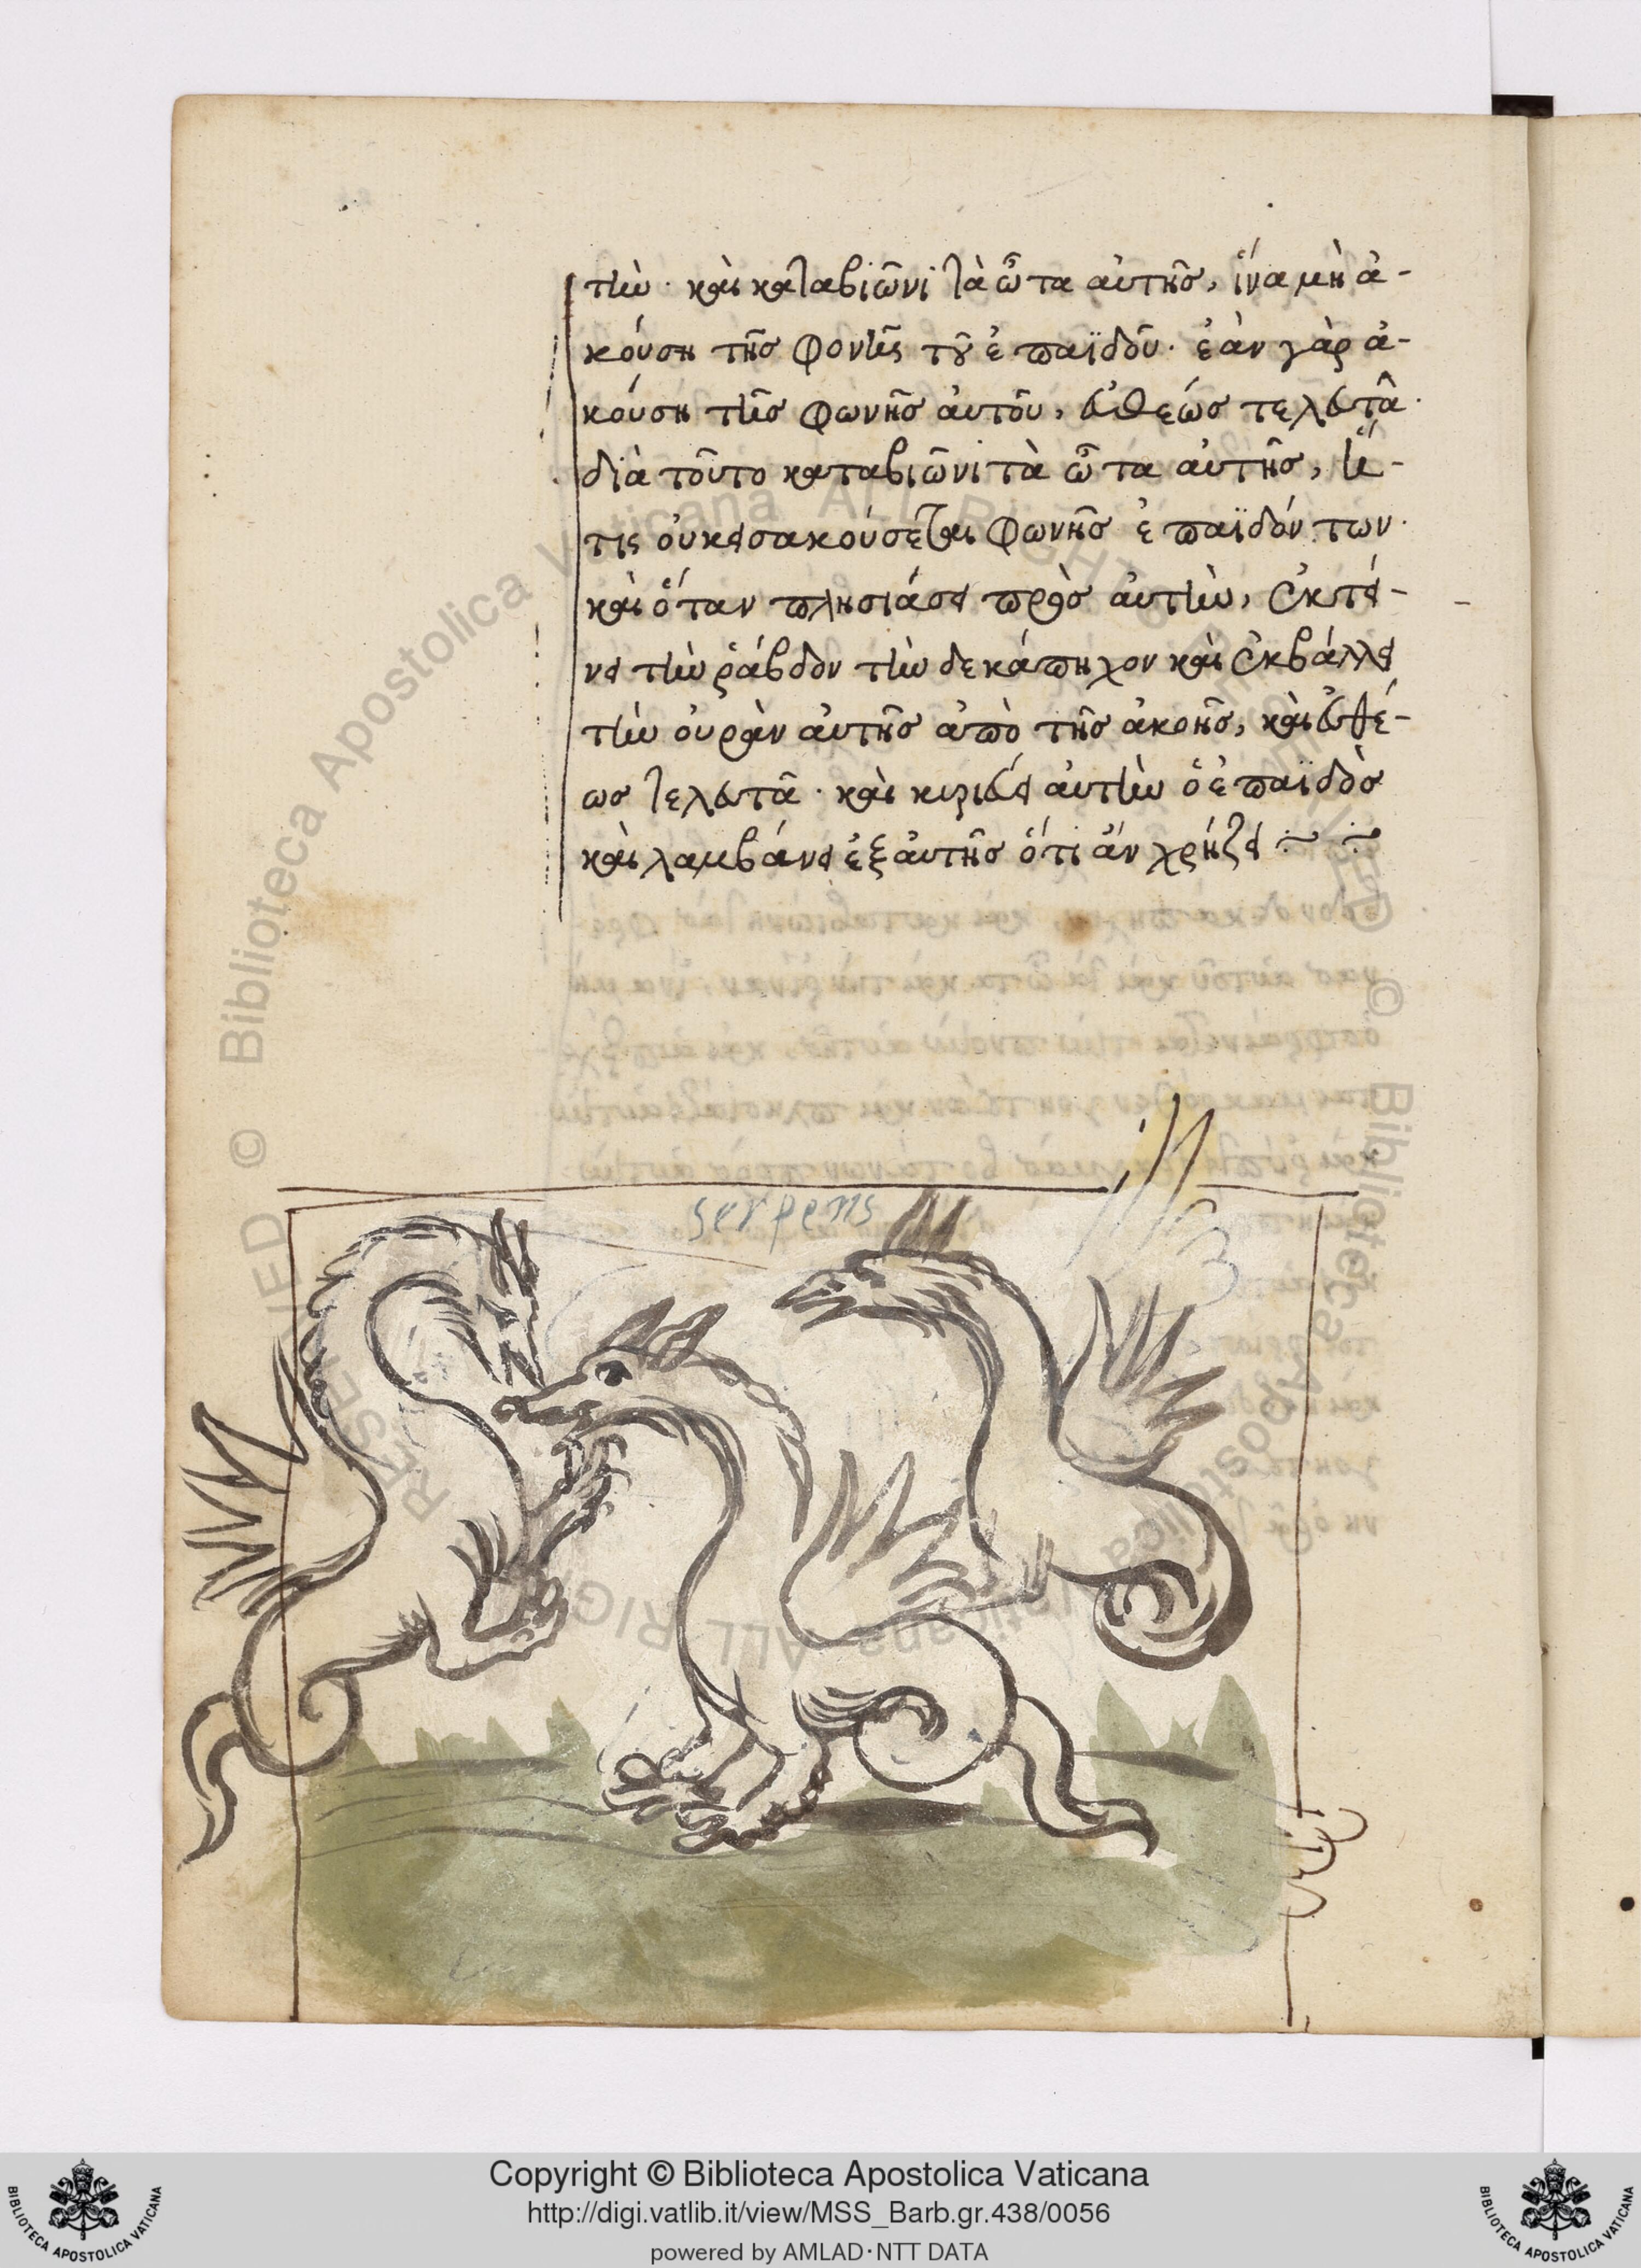 τὴν· καὶ καταβιῶνι τὰ ὦτα αὐτῆς, ἵνα μὴ ἀ-
κούση τῆς φονῆς τοῦ ἐπαϊδοῦ· ἐὰν γὰρ ἀ-
κούση τῆς φωνῆς αὐτοῦ, εὐθεώς τελευτᾶ·
διὰ τοῦτο καταβιῶνι τὰ ὦτα αὐτῆς, ἥ-
τις οὐκ εἰσακούσεται φωνῆς ἐπαϊδόντων·
καὶ ὅταν πλησιάσει πρὸς αὐτὴν, ἐκτεί-
νει τὴν ῥάβδον τὴν δεκάπηχον καὶ ἐκβάλλει
τὴν οὐρὰν αὐτῆς ἀπὸ τῆς ἀκοῆς, καὶ εὐθέ-
ως τελευτᾶ· καὶ κυριεύει αὐτὴν ὁ ἐπαϊδὸς
καὶ λαμβάνει ἐξ αὐτῆς ὅτι ἂν χρήζει
serpens
© Biblioteca Apostolica Vaticana ALL RIGHTS RESERVED
© Biblioteca Apostolica Vaticana ALL RIGHTS RESERVED
Copyright © Biblioteca Apostolica Vaticana
http://digi.vatlib.it/view/MSS_Barb.gr.438/0056
powered by AMLAD·NTT DATA
BIBLIOTECA APOSTOLICA VATICANA
BIBLIOTECA APOSTOLICA VATICANA